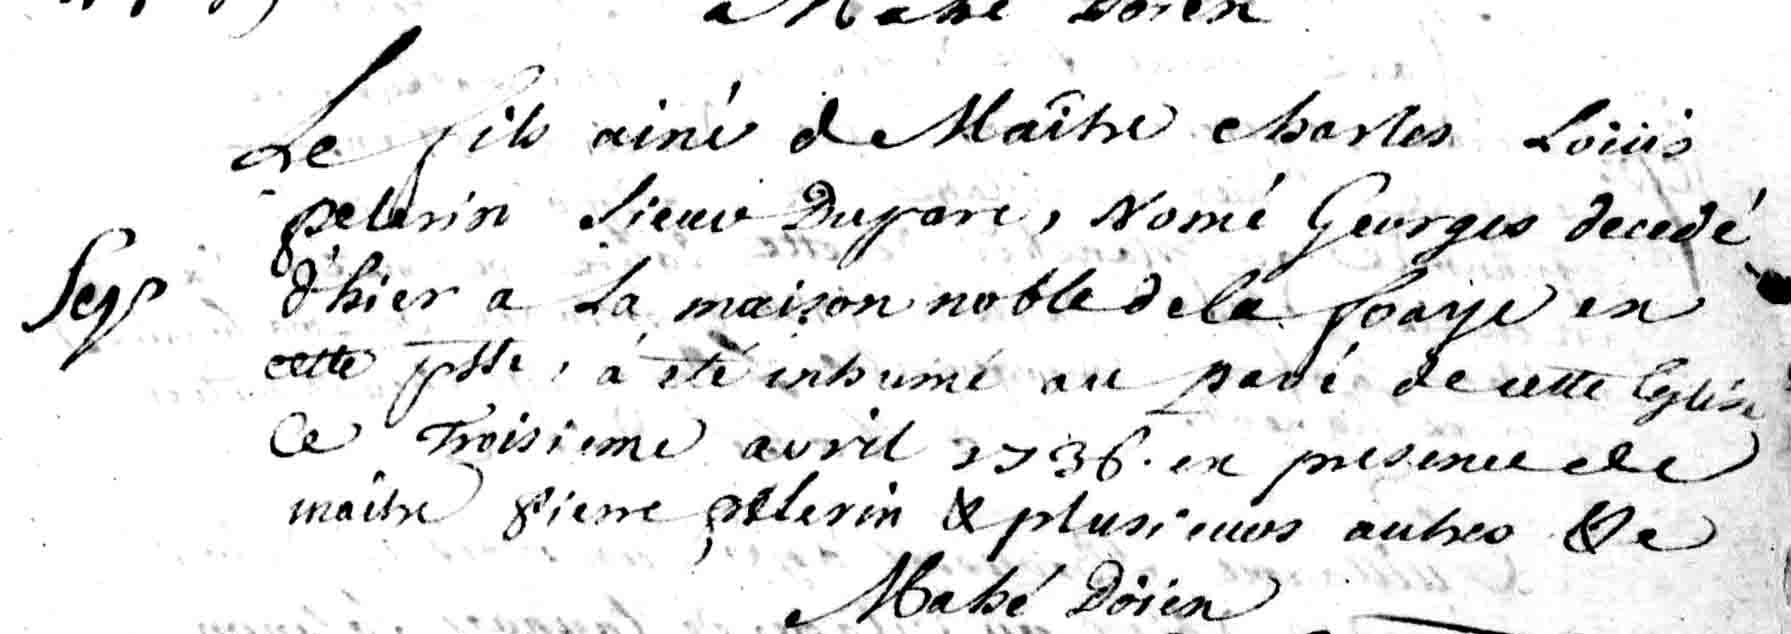 Mahé Doïen
Le fils ainé de Maître Charles Loüis
pelerin sieur Duparc, Nomé Georges decedé
d'hier a La maison noble de la foaÿe en
Sep^re
cette psse, á eté inhumé au pavé de cette Eglise
Ce Troisieme avril 1736. en presence de
maître Pierre pelerin & plusieurs autres &c
Mahé Doïen